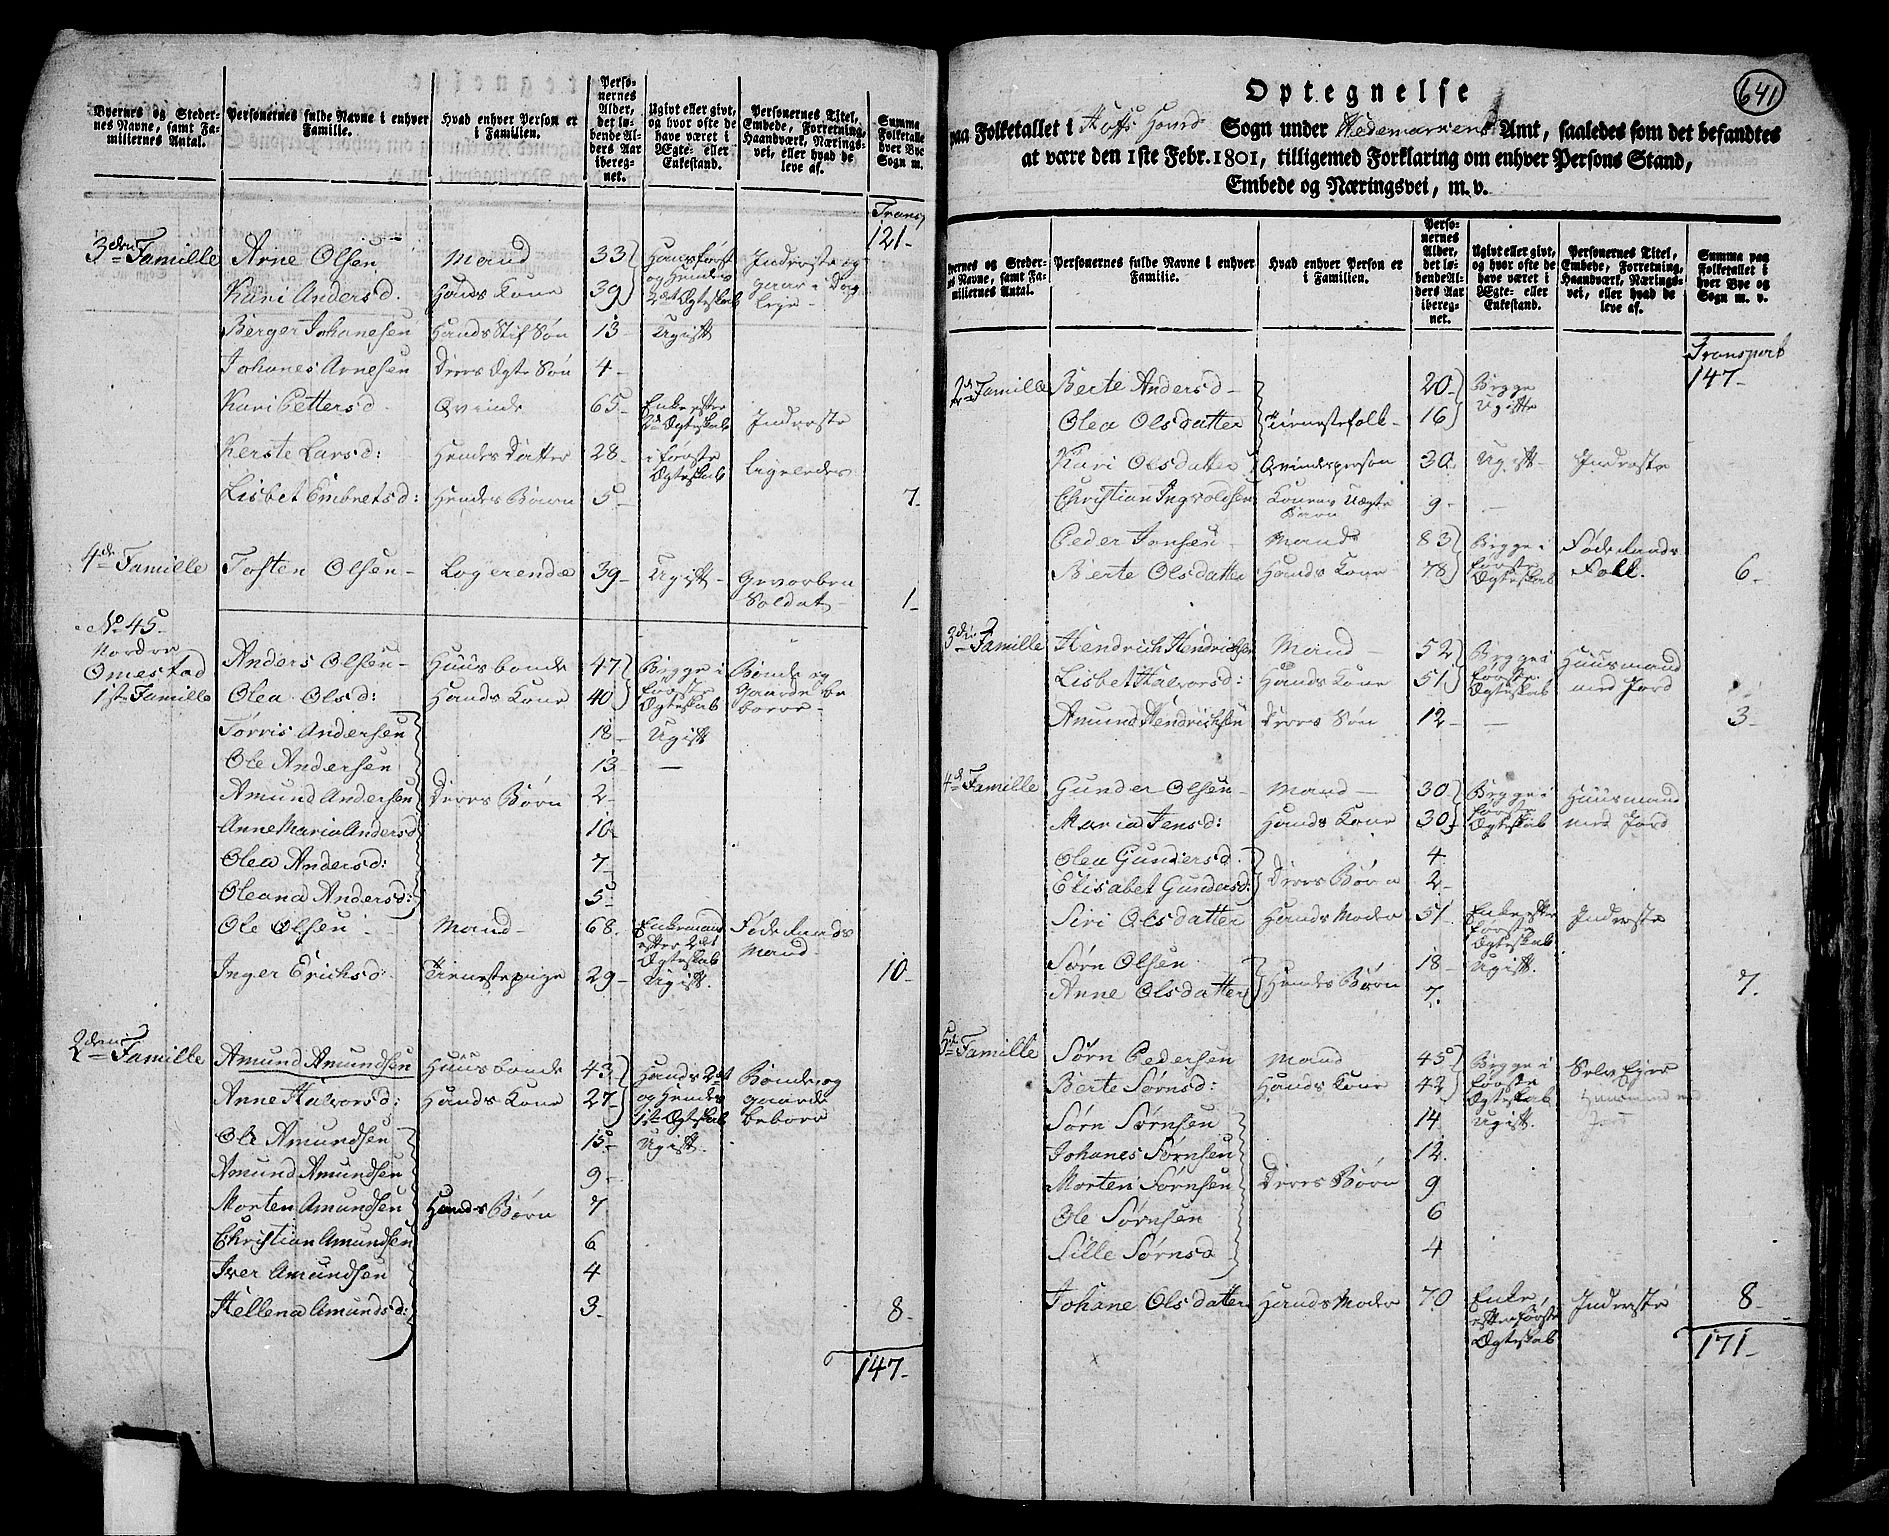 Byernes og Steder-
nes Navne, samt Fa-
miliernes Antal.
Personernes fulde Navne i enhver
Familie.
Hvad enhver Person er
i Familien.
Perso-
nernes
Alder,
det lø-
bende Al-
ders Aar
ibereg-
net.
Ugivt eller givt,
og hvor ofte de
have været i
Ægte- eller
Enkestand.
Personernes Titel,
Embede, Forretning,
Haandværk, Nærings-
vei, eller hvad de
leve af.
Summa
Folketallet
hver Bye
Sogn m.
Transp
121-
3den Familie Arne Olsen Mand 33 Hans først Inderste og
Kari Andersd. Hans Kone 39 og Hendes 2det Ægteskab gaar i Dag Leye
Berger Johanesen Hands Stif Søn 13 Ugift
Johanes Arnesen Deres Ægte Søn 4-
Kari Pettersd. Qvinde 65- Enke efter 2det Ægteskab Inderste
Kerste Larsd: Hendes Datter 28- i første Ægteskab ligeledes
Lisbet Embretsd: Hendes Barn 5- 7-
4de Familie Tosten Olsen- Logerende 39- Ugift- Gevorben
Soldat- 1-
No 45-
Nordre
Omestad Anders Olsen- Huusbonde 47 Begge i Bonde og
1ste Familie Olea Olsd: Hands Kone 40 første Ægteskab Gaardbeboer-
Torris Andersen 18- Ugift
Ole Andersen 13 —
Amund Andersen Deres Børn 2-
Anne Maria Andersd 10-
Olea Andersd: 7-
Oleana Andersd: 5-
Ole Olsen Mand- 68. Enkemand efter 2det Ægteskab Føderaads Mand-
Inger Erichsd: Tienestepige 29- Ugift. 10-
2den Familie Amund Amundsen Huusbonde 43 Hands 2det Bonde og
Anne Halvorsd: Hands Kone 27- og Hendes 1ste Ægteskab gaardbeboer
Ole Amundsen 15- Ugift
Amund Amundsen 9-
Morten Amundsen Hands Børn 7
Christian Amundsen 6
Iver Amundsen 4
Hellena Amundsd: 3- 8-
147-
641
Optegnelse
paa Folketallet i Sogn under Hedemarkens Amt, saaledes som det befandtes
at være den 1ste Febr. 1801, tilligemed Forklaring om enhver Persons Stand,
Embede og Næringsvei, m. v.
Byernes og Steder-
nes Navne, samt Fa-
miliernes Antal.
Personernes fulde Navne i enhver
Familie.
Hvad enhver Person er
i Familien.
Perso-
nernes
Alder,
det lø-
bende Al-
ders Aar
ibereg-
net.
Ugivt eller givt,
og hvor ofte de
have været i
Ægte- eller
Enkestand.
Personernes Titel,
Embede, Forretning,
Haandværk, Nærings-
vei, eller hvad de
leve af.
Summa paa
Folketallet i
hver Bye og
Sogn m. v.
Transport
147-
2de Familie Berte Andersd- 20- Begge
Olea Olsdatter Tienestefolk- 16 Ugifte
Kari Olsdatter Qvindesperson 30. Ugift- Inderste
Christian Ingvoldsen Konens Uægte Barn 9- —
Peder Jonsen- Mand 83 Begge i Føderaads
Berte Olsdatter Hands Kone 78 første Ægteskab Folk. 6-
3die Familie Hendrich Hendrichsen Mand- 52 Begge i Huusmand
Lisbet Halvorsd: Hands Kone 51. første Ægteskab med Jord
Amund Hendrichsen Deres Søn 12- — 3-
4de Familie Gunder Olsen- Mand- 30 Begge i Huusmand
Maria Jensd: Hands Kone 30 første Ægteskab med Jord
Olea Gundersd. 4
Elisabet Gundersd: Deres Børn 2-
Siri Olsdatter Hands Moder 51 Enke efter første Ægteskab Inderste
Sørn Olsen 18- Ugift.
Anne Olsdatter Hendes Børn 7. 7.
5te Familie Sørn Pedersen Mand 45 Begge i Selv Ejer
Berte Sørnsd: Hands Kone 42 første Ægteskab Huusmand med
Sørn Sørnsen 14 Ugift. Jord
Johanes Sørnsen 12.
Morten Sørnsen Deres Børn 9
Ole Sørnsen 6
Sille Sørnsd 4
Johane Olsdatter Hands Moder 70 Enke, efter første Ægteskab Inderste 8-
171-